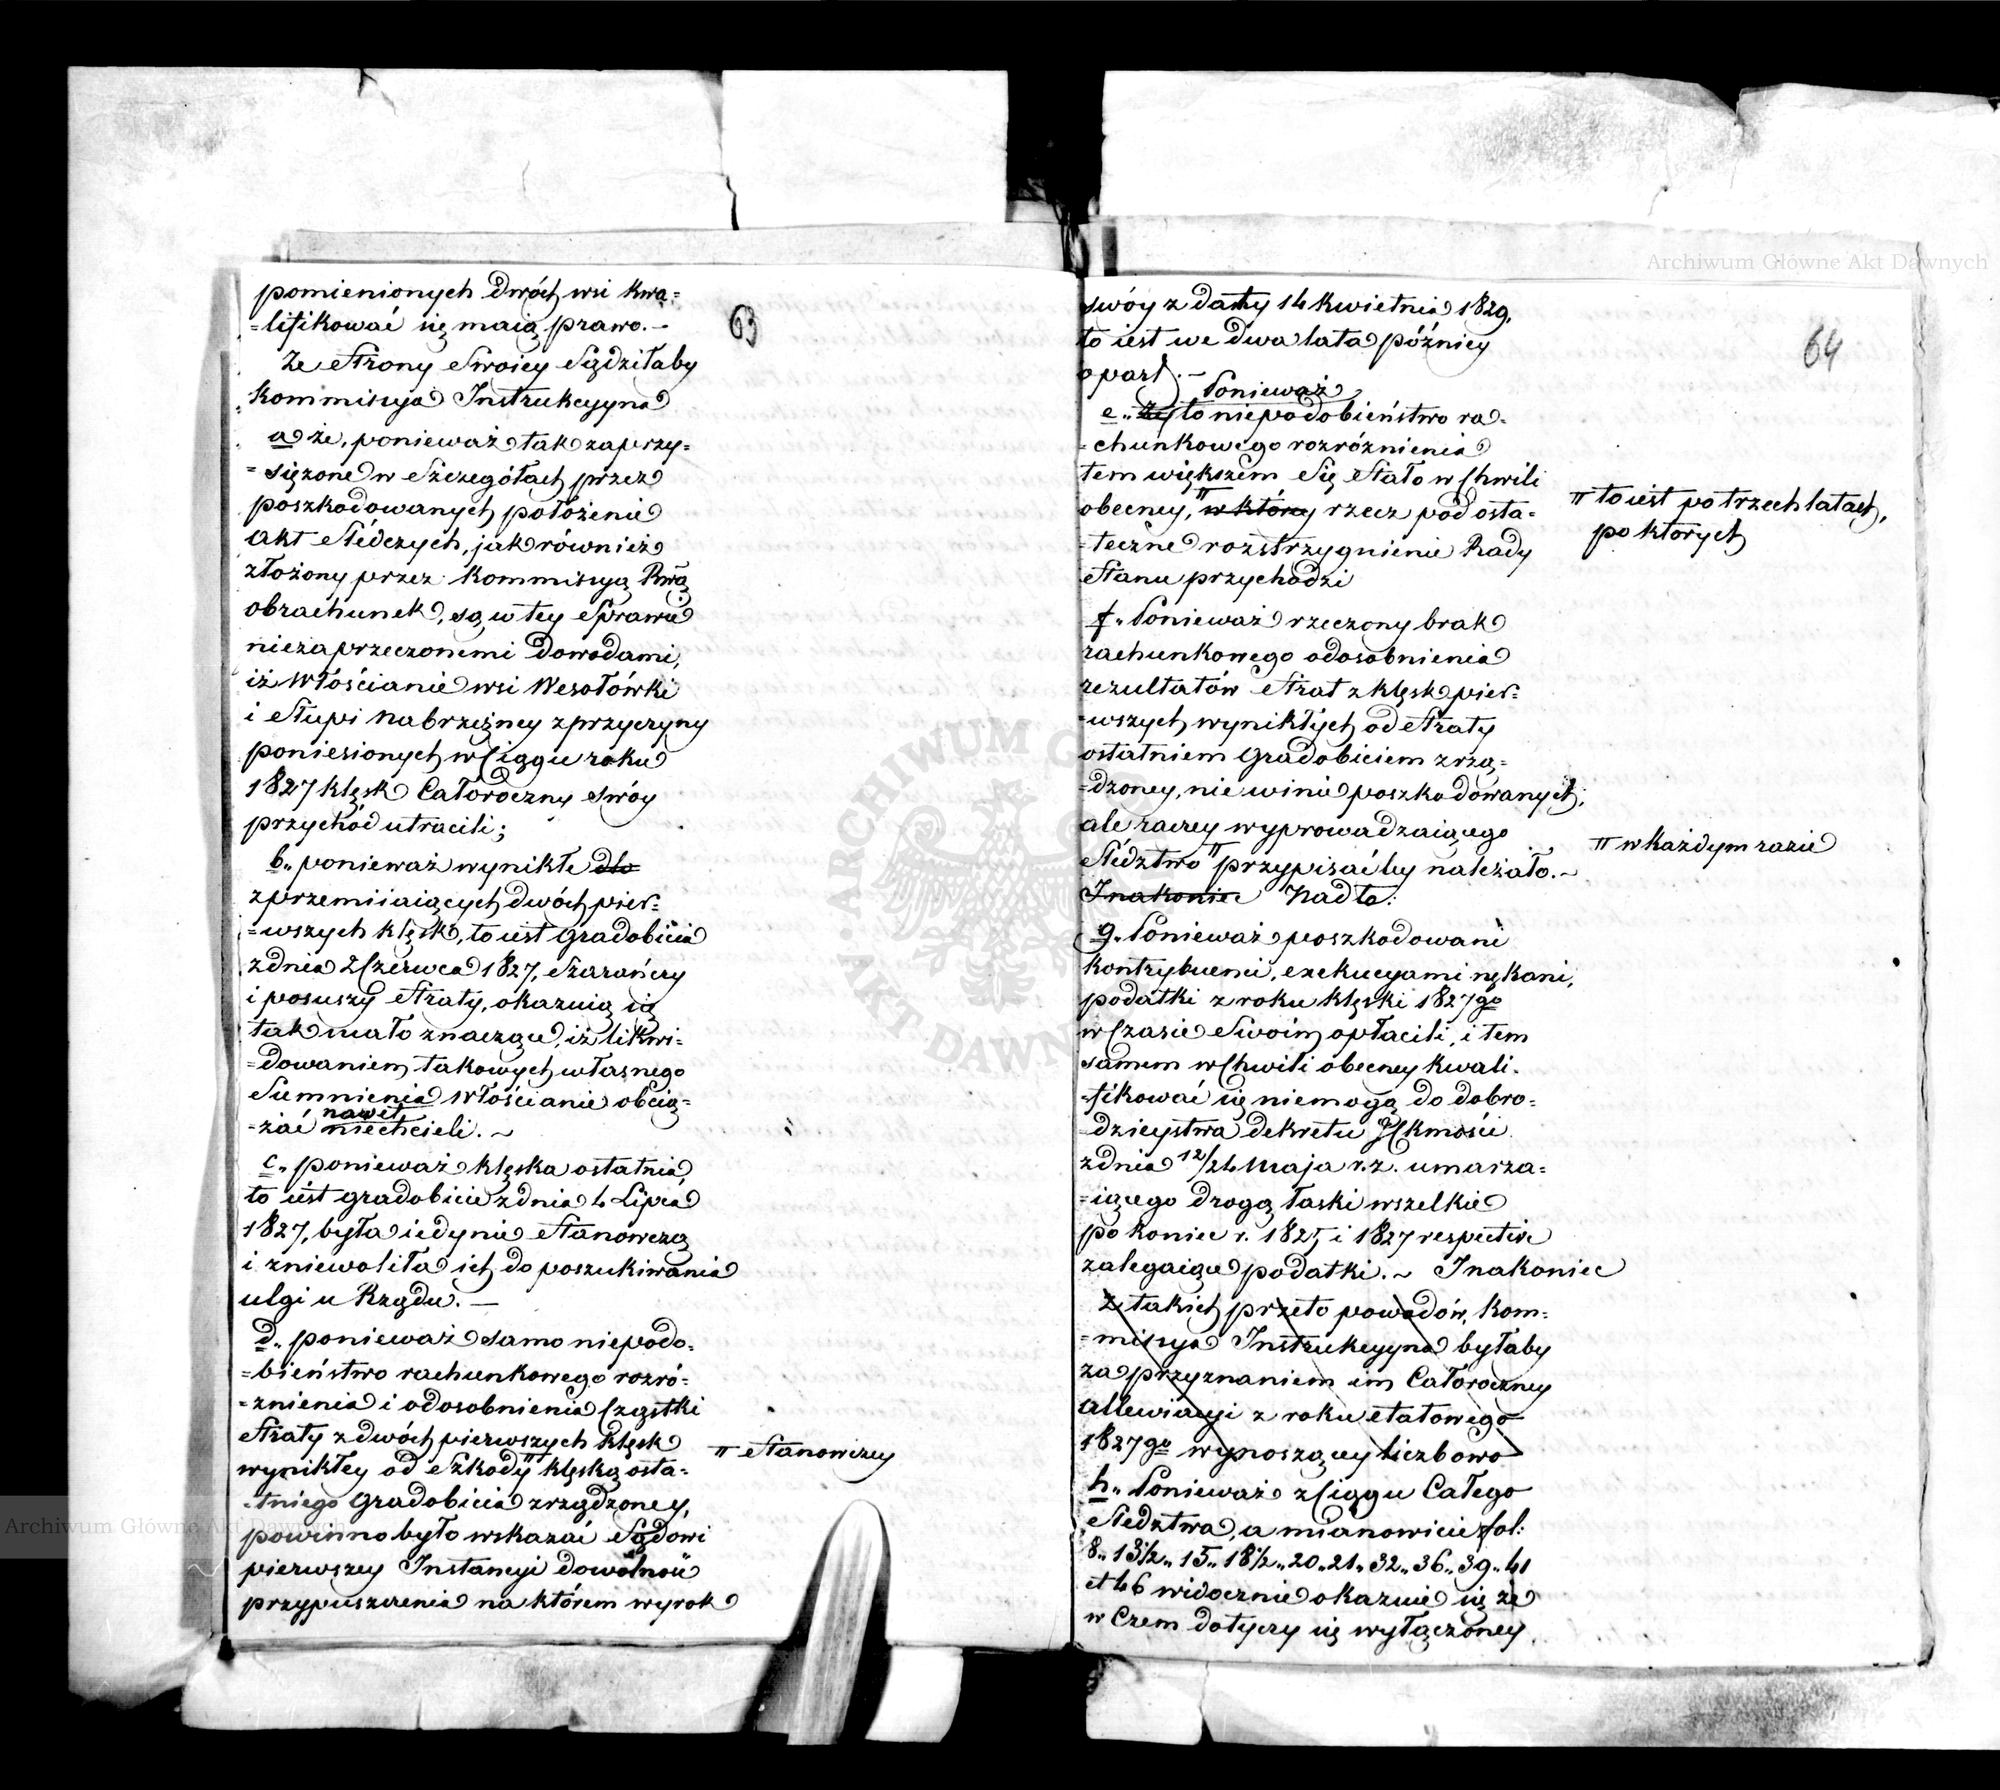 63
pomienionych dwóch wsi kwa=
=lifikować się maią prawo.—
Ze Strony Swoiey Sądziłaby
Kommissya Instrukcyyna
a że, ponieważ tak zaprzy=
=siężone w Szczegółach przez
poszkodowanych położenie
akt Śledczych, jak również
złożony przez Kommissyą Rwą
obrachunek, są w tey Sprawie
niezaprzeczonemi dowodami,
iż Włościanie wsi Wesołówki
i Słupi Nabrzeżney z przyczyny
poniesionych w Ciągu roku
1827 klęsk Całoroczny swóy
przychód utracili;
b„ ponieważ wynikłe dla
z przemiiaiących dwóch pier=
=wszych klęsk, to iest Gradobicia
z dnia 2 Czerwca 1827, Szarańczy
i posuszy Straty, okazuią się
tak mało znaczące, iż likwi=
=dowaniem takowych własnego
Sumnienia Włościanie obcią=
nawet
=żać niechcieli. ~
c„ ponieważ klęska ostatnia,
to iest gradobicie z dnia 4 Lipca
1827, była iedynie Stanowczą
i zniewoliła ich do poszukiwania
ulgi u Rządu. —
d„ ponieważ samo niepodo=
=bieństwo rachunkowego rozró=
=żnienia i odosobnienia Cząstki
Straty z dwóch pierwszych klęsk
wynikłey od Szkody π klęską osta=
π Stanowczey
=tniego Gradobicia zrządzoney,
powinno było wskazać Sądowi
pierwszey Instancyi dowolność
przypuszczenia na którem wyrok
64
swóy z daty 14 Kwietnia 1829,
to iest we dwa lata późniey
oparł. —
Ponieważ
e„ że to niepodobieństwo ra=
=chunkowego rozróżnienia
tem większem Się Stało w Chwili
obecney, π w którey rzecz pod osta=
π to iest po trzech latach,
po których
=teczne rozstrzygnienie Rady
Stanu przychodzi
f„ Ponieważ rzeczony brak
rachunkowego odosobnienia
rezultatów Strat z klęsk pier=
=wszych wynikłych od Straty
ostatniem Gradobiciem zrzą=
=dzoney, nie winie poszkodowanych,
ale raczey wyprowadzaiącego
Śledztwo π przypisać by należało. ~
π w każdym razie
Inakoniec Nadto:
g„ Ponieważ poszkodowani
kontrybuenci, exekucyami nękani,
podatki z roku klęski 1827go
w Czasie Swoim opłacili, i tem
samem w Chwili obecney kwali=
=fikować się niemogą do dobro=
=dzieystwa dekretu JCKmości
z dnia 12/24 Maja r. z. umarza=
=iącego drogą łaski wszelkie
po koniec r. 1825 i 1827 respective
zalegaiące podatki. ~ Inakoniec
z takich przeto powodów, Kom=
=missya Instrukcyyna byłaby
za przyznaniem im Całoroczney
allewiacyi z roku etatowego
1827go wynoszącey liczbowo
h„ Ponieważ z Ciągu Całego
Śledztwa, a mianowicie fol:
8„ 13½„ 15„ 18½„ 20„ 21„ 32„ 36„ 39„ 41
et 46 widocznie okazuie się że
w Czem dotyczy się wyłączoney
Archiwum Główne Akt Dawnych
Archiwum Główne Akt Dawnych